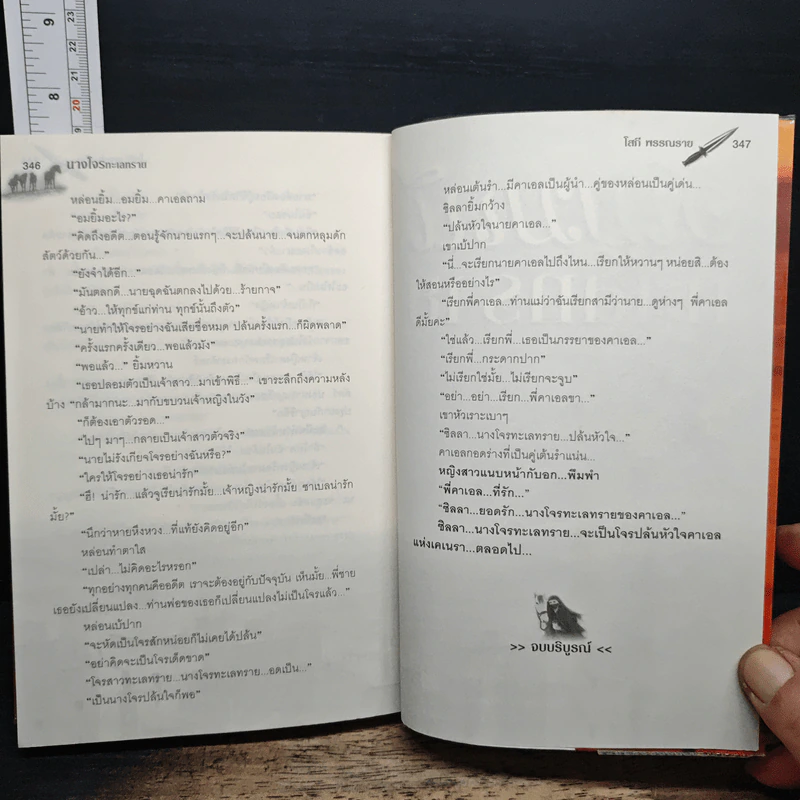 9
8
23
22
21
20
19
346 นางโจรทะเลทราย
หล่อนยิ้ม...อมยิ้ม...คาเอลถาม
“อมยิ้มอะไร?”
“คิดถึงอดีต...ตอนรู้จักนายแรกๆ...จะปล้นนาย...จนตกหลุมดัก
สัตว์ด้วยกัน...”
“ยังจำได้อีก...”
“มันตลกดี...นายฉุดฉันตกลงไปด้วย...ร้ายกาจ”
“อ้าว...ให้ทุกข์แก่ท่าน ทุกข์นั้นถึงตัว”
“นายทำให้โจรอย่างฉันเสียชื่อหมด ปล้นครั้งแรก...ก็ผิดพลาด”
“ครั้งแรกครั้งเดียว...พอแล้วมั้ง”
“พอแล้ว...” ยิ้มหวาน
“เธอปลอมตัวเป็นเจ้าสาว...มาเข้าพิธี...” เขาระลึกถึงความหลัง
บ้าง “กล้ามากนะ...มากับขบวนเจ้าหญิงในวัง”
“ก็ต้องเอาตัวรอด...”
“ไปๆ มาๆ...กลายเป็นเจ้าสาวตัวจริง”
“นายไม่รังเกียจโจรอย่างฉันหรือ?”
“ใครให้โจรอย่างเธอน่ารัก”
“ฮึ! น่ารัก...แล้วจูเรียน่ารักมั้ย...เจ้าหญิงน่ารักมั้ย ซาเบลน่ารัก
มั้ย?”
“นึกว่าหายหึงหวง...ที่แท้ยังคิดอยู่อีก”
หล่อนทำตาใส
“เปล่า...ไม่คิดอะไรหรอก”
“ทุกอย่างทุกคนคืออดีต เราจะต้องอยู่กับปัจจุบัน เห็นมั้ย...พี่ชาย
เธอยังเปลี่ยนแปลง...ท่านพ่อของเธอก็เปลี่ยนแปลงไม่เป็นโจรแล้ว...”
หล่อนเบ้ปาก
“จะหัดเป็นโจรสักหน่อยก็ไม่เคยได้ปล้น”
“อย่าคิดจะเป็นโจรเด็ดขาด”
“โจรสาวทะเลทราย...นางโจรทะเลทราย...อดเป็น...”
“เป็นนางโจรปล้นใจก็พอ”
โสภี พรรณราย 347
หล่อนเต้นรำ...มีคาเอลเป็นผู้นำ...คู่ของหล่อนเป็นคู่เด่น...
ซิลลายิ้มกว้าง
“ปล้นหัวใจนายคาเอล...”
เขาเบ้ปาก
“นี่...จะเรียกนายคาเอลไปถึงไหน...เรียกให้หวานๆ หน่อยสิ...ต้อง
ให้สอนหรืออย่างไร”
“เรียกพี่คาเอล...ท่านแม่ว่าฉันเรียกสามีว่านาย...ดูห่างๆ พี่คาเอล
ดีมั้ยคะ”
“ใช่แล้ว...เรียกพี่...เธอเป็นภรรยาของคาเอล...”
“เรียกพี่...กระดากปาก”
“ไม่เรียกใช่มั้ย...ไม่เรียกจะจูบ”
“อย่า...อย่า...เรียก...พี่คาเอลขา...”
เขาหัวเราะเบาๆ
“ซิลลา...นางโจรทะเลทราย...ปล้นหัวใจ...”
คาเอลกอดร่างที่เป็นคู่เต้นรำแน่น...
หญิงสาวแนบหน้ากับอก...พึมพำ
“พี่คาเอล...ที่รัก...”
“ซิลลา...ยอดรัก...นางโจรทะเลทรายของคาเอล...”
ซิลลา...นางโจรทะเลทราย...จะเป็นโจรปล้นหัวใจคาเอล
แห่งเคเนรา...ตลอดไป...
>> จบบริบูรณ์ <<